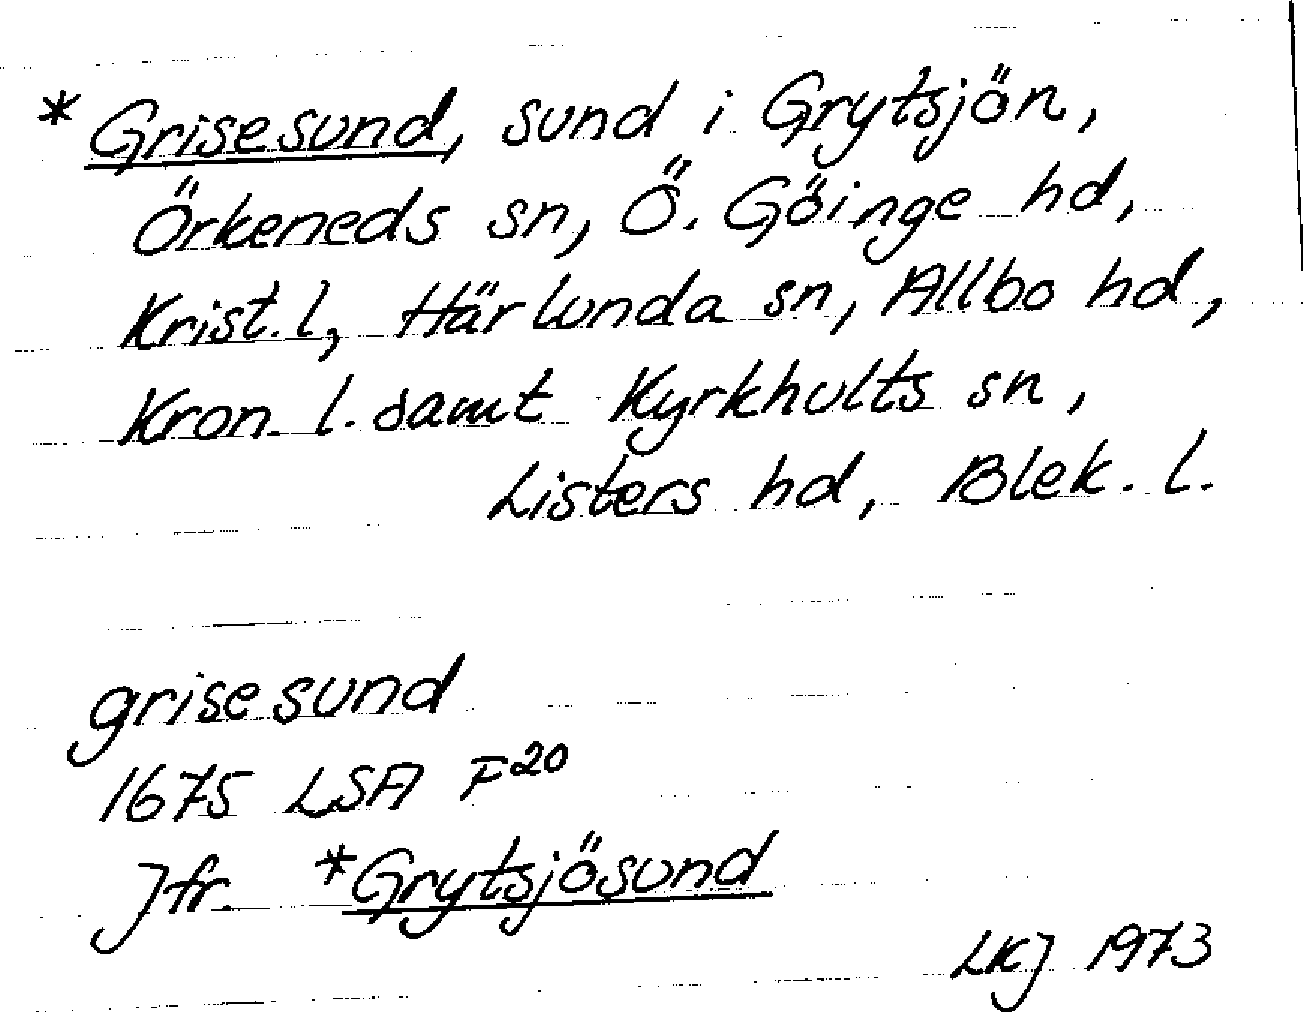 * Grisesund, sund i Grytsjön,
Örkeneds sn, Ö. Göinge hd,
Krist. l, Härlunda sn, Allbo hd,
Kron. l. samt Kyrkhults sn,
Listers hd, Blek. l.
grisesund
1675 LSA F20
Jfr. *Grytsjösund
LKJ 1973